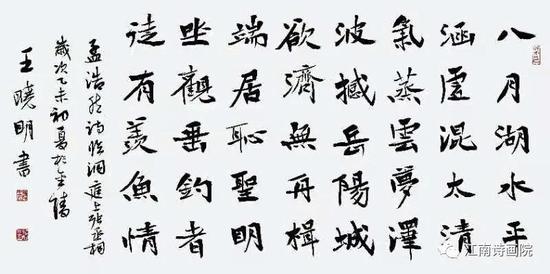 八月湖水平
涵虛混太清
氣蒸雲夢澤
波撼岳陽城
欲濟無舟楫
端居恥聖明
坐觀垂釣者
徒有羡魚情
孟浩然詩臨洞庭上張丞相
歲次乙未初夏於金陵
王曉明書
江南诗画院